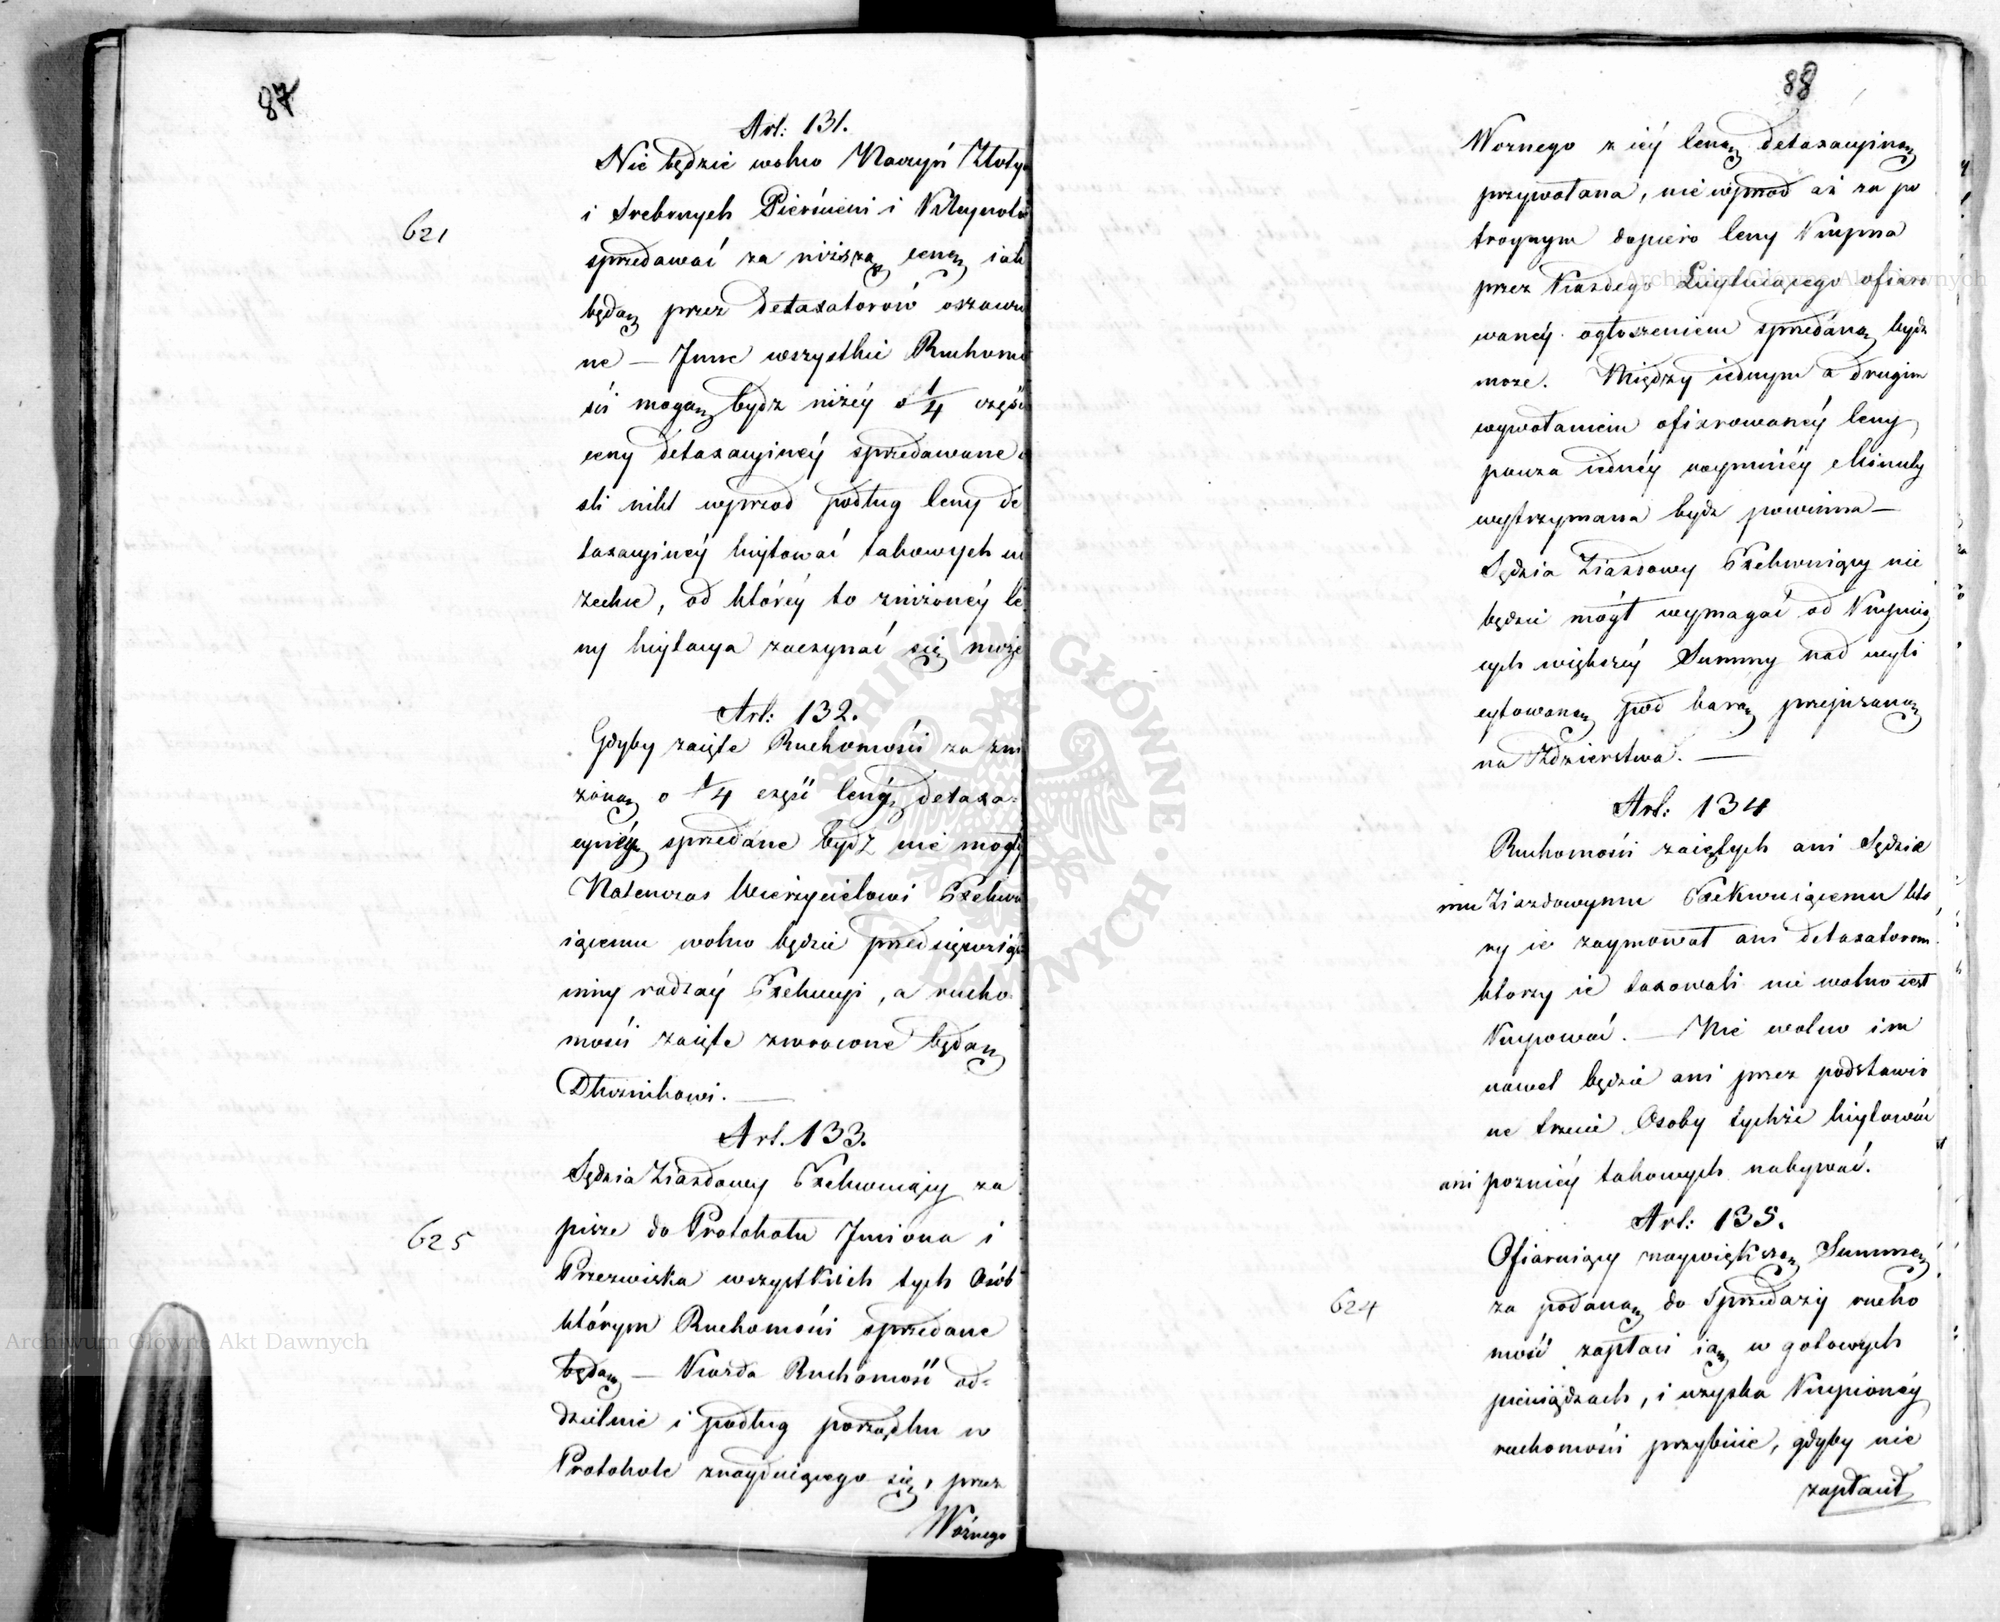 87
Art: 131.
Nie będzie wolno Naczyń Złoty
i Srebrnych Pierścieni i Kleynotó
621
sprzedawać za niższą cenę iak
będą przez detaxatorów oszaco
ne — Inne wszystkie Ruchomo
ści mogą bydz niżéy o 1/4 częśc
ceny detaxacyinéy sprzedawane
sli nikt wprzod podług Ceny de
taxacyinéy licytować takowych
zechce, od któréy to zniżonéy Ce
ny licytacya zaczynać się może
Art: 132.
Gdyby zaięte Ruchomości za zni
żoną o 1/4 część Cenę detaxa-
cyiną sprzedane bydz nie mogły
Natenczas Wierzycielowi Exekwu
iącemu wolno będzie przedsięwziąć
inny rodzay Exekucyi, a rucho
mości zaięte zwrócone będą
Dłużnikowi. —
Art. 133.
Sędzia Ziazdowy Exekwuiący za
625
pisze do Protokołu Imiona i
Przezwiska wszystkich tych Osób
którym Ruchomości sprzedane
będą — Każda Ruchomość od-
dzielnie i podług porządku w
Protokole znayduiącego się, przez
Woźnego
88
Woznego z iéy Ceną detaxacyiną
przywołana, nie wprzod aż za po
troynym dopiero Ceny Kupna
przez Każdego Licytuiącego ofiaro
wanéy ogłoszeniem sprzedaną bydz
może. Między iednym a drugim
wywołaniem ofiarowanéy Ceny
pauza iednéy naymniéy Minuty
wstrzymana bydz powinna —
Sędzia Ziazdowy Exekwuiący nie
będzie mógł wymagać od Kupuią
cych większéy Summy nad wyli
cytowaną pod karą przepisaną
na Zdzierstwa. —
Art: 134
Ruchomości zaiętych ani Sędzie
mu Ziazdowymu Exekwuiącemu któ
ry ie zaymował ani detaxatorom
ktorzy ie taxowali nie wolno iest
Kupować. — Nie wolno im
nawet będzie ani przez podstawio
ne trzecie Osoby tychże licytować
ani poznieý takowych nabywać.
Art: 135.
Ofiaruiący naywiększą Summę
624
za podaną do Sprzedaży rucho
mość zapłaci ią w gotowych
pieniądzach, i uzyska Kupionéy
ruchomości przybicie, gdyby nie
zapłacił
Archiwum Główne Akt Dawnych
Archiwum Główne Akt Dawnych
ARCHIWUM GŁÓWNE AKT DAWNYCH